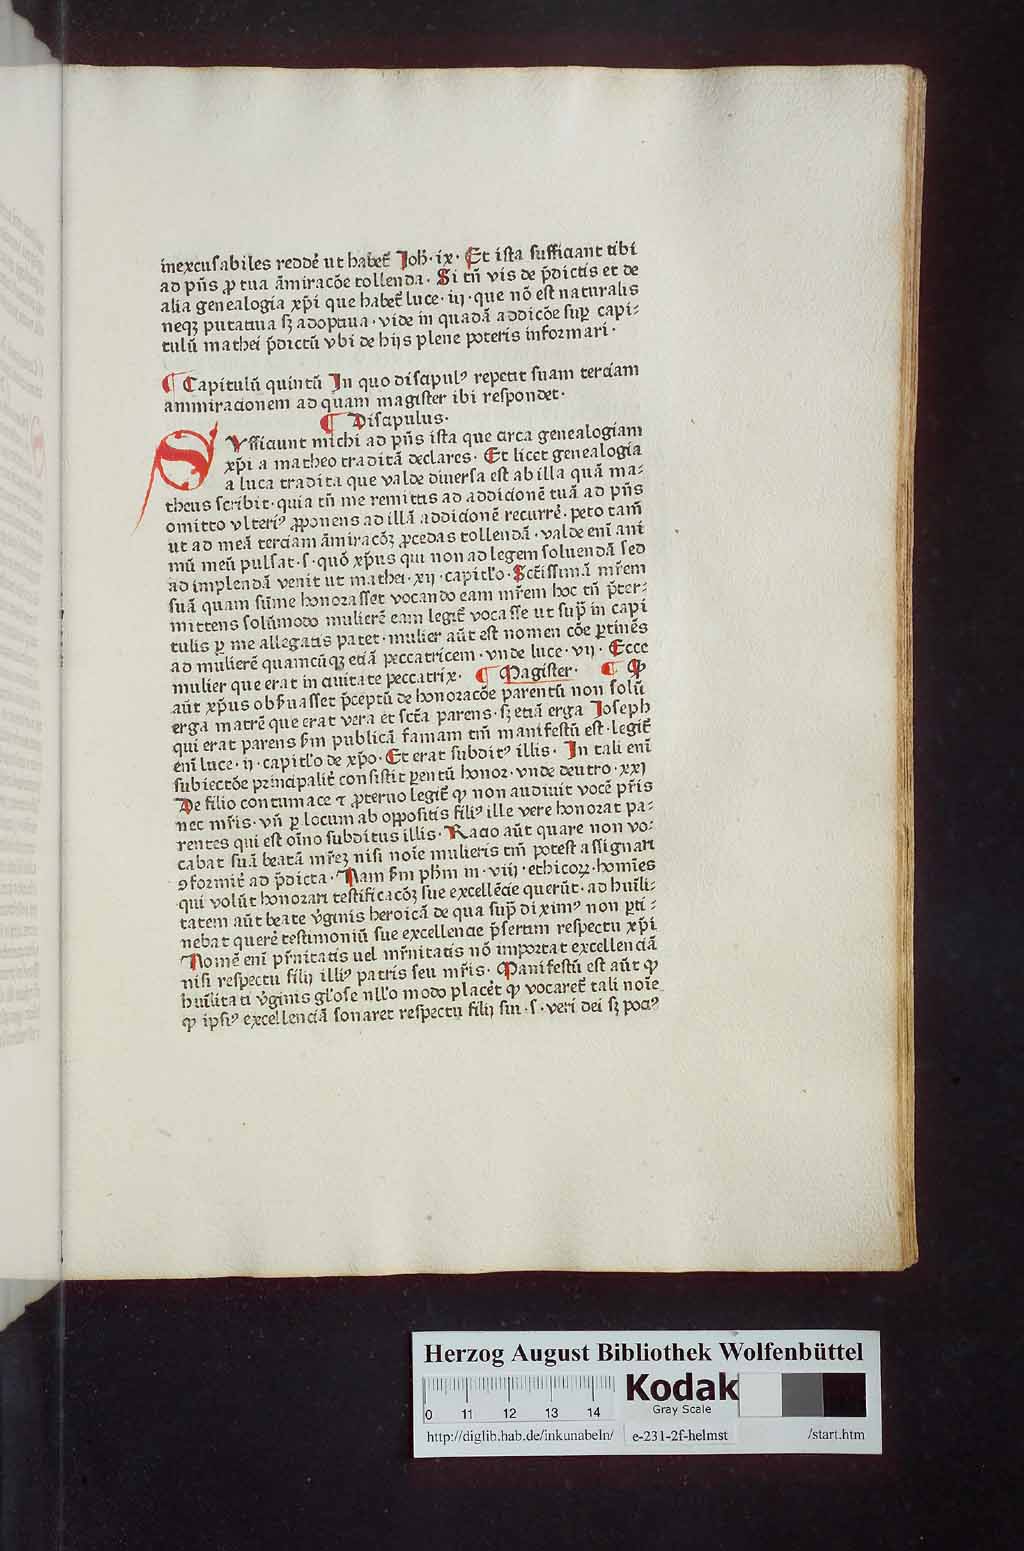 inexcusabiles redde᷑ ut habet᷑ Joh̄·ix· Et ista sufficiant tibi
ad pn̄s ꝓ tua āmiracōe tollenda· Si tn̄ vis de p̄dictis et de
alia genealogia xp̄i que habet᷑ luce·iij·que nō est naturalis
neqꝫ putatiua sꝫ adoptiua·vide in quadā addicōe suꝑ capi⸗
tulū mathei p̄dictū vbi de hijs plene poteris informari·
¶ Capitulū quintū In quo discipulꝰ repetit suam terciam
ammiracionem ad quam magister ibi respondet·
¶ Discipulus·
SVfficiunt michi ad pn̄s ista que circa genealogiam
xp̄i a matheo traditā declares· Et licet genealogia
a luca tradita que valde diuersa est ab illa quā ma⸗
theus scribit·quia tn̄ me remittis ad addicionē tuā ad pn̄s
omitto vlteriꝰ ꝓponens ad illā addicionē recurre᷑·peto tam̄
ut ad meā terciam āmiracōꝫ ꝓcedas tollendā·valde enī ani
mū meū pulsat·s·quō xp̄us qui non ad legem soluendā sed
ad implendā venit ut mathei·xij·capitl'o·Sct̄issimā mr̄em
suā quam sūme honorasset vocando eam mr̄em hoc tn̄ p̄ter⸗
mittens solūmodo mulierē eam legit᷑ vocasse ut sup̄ in capi
tulis ꝑ me allegatis patet·mulier aūt est nomen cōe ꝑtinēs
ad mulierē quamcūqꝫ etiā peccatricem·vnde luce·vij· Ecce
mulier que erat in ciuitate peccatrix· ¶ Magister· ¶ Ꝙ
aūt xp̄us obſ̄uasset p̄ceptū de honoracōe parentū non solū
erga matrē que erat vera et sct̄a parens·sꝫ etiā erga Joseph
qui erat parens ſm̄ publicā famam tn̄ manifestū est·legit᷑
enī luce·ij·capitl'o de xp̄o· Et erat subditꝰ illis· In tali enī
subiectōe principalit᷑ consistit ꝑentū honor·vnde deutro·xxi
De filio contumace ⁊ ꝓteruo legit᷑ ꝙ non audiuit vocē pr̄is
nec mr̄is·vn̄ ꝑ locum ab oppositis filiꝰ ille vere honorat pa⸗
rentes qui est oīno subditus illis· Racio aūt quare non vo⸗
cabat suā beatā mr̄eꝫ nisi noīe mulieris tn̄ potest assignari
ꝯformit᷑ ad p̄dicta· Nam ſm̄ ph̄m in·viij·ethicoꝝ·homīes
qui volūt honorari testificacōꝫ sue excellēcie querūt·ad hūili⸗
tatem aūt beate v̄ginis heroicā de qua sup̄ diximꝰ non ꝑti⸗
nebat quere᷑ testimoniū sue excellencie p̄sertim respectu xp̄i
Nomē enī pr̄nitatis uel mr̄nitatis nō importat excellenciā
nisi respectu filij illiꝰ patris seu mr̄is· Manifestū est aūt ꝙ
hūilitati v̄ginis gl'ose nll'o modo place᷑t ꝙ vocaret᷑ tali noīe
ꝙ ipsiꝰ excellenciā sonaret respectu filij sui·s·veri dei sꝫ pociꝰ
Herzog August Bibliothek Wolfenbüttel
0 11 12 13 14
Kodak
Gray Scale
http://diglib.hab.de/inkunabeln/ e-231-2f-helmst /start.htm